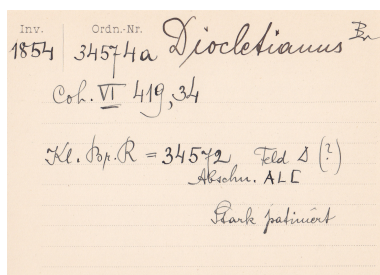 Inv. Ordn.-Nr.
1854 34574a Diocletianus Br
Coh. VI 419,34
Kl. Br. R = 34572 Feld Δ (?)
Abschn. ALE
Stark patiniert